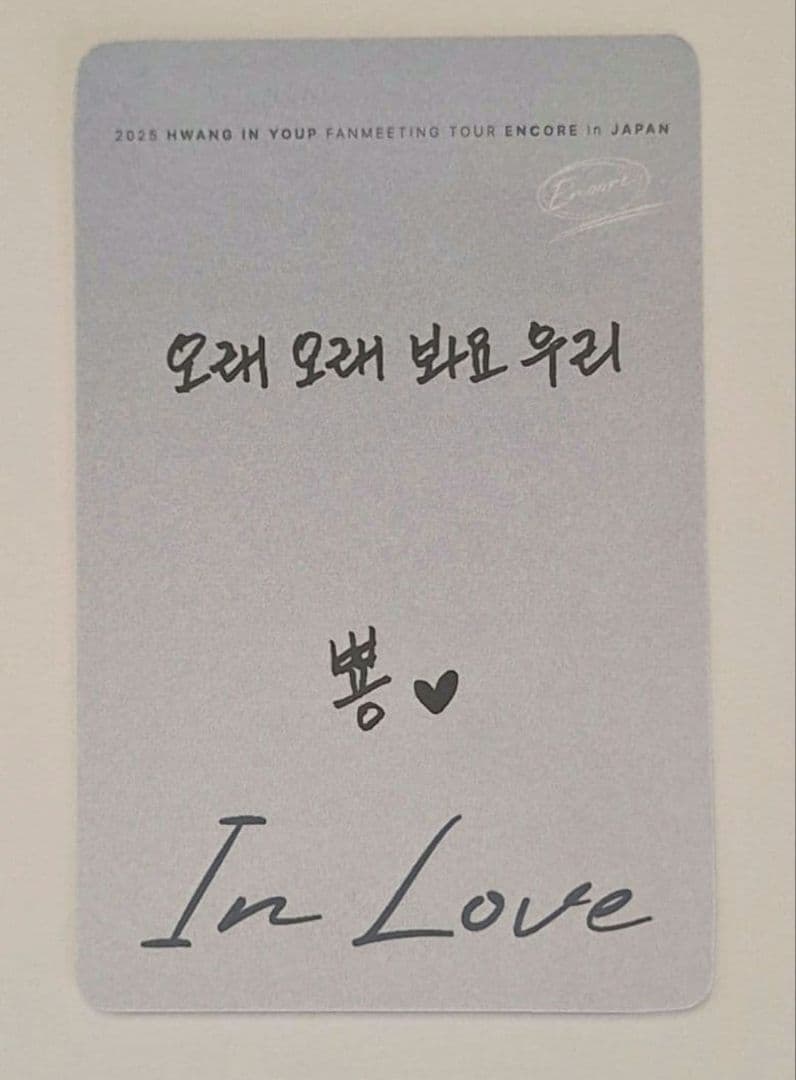 2025 HWANG IN YOUP FANMEETING TOUR ENCORE in JAPAN
Encore
오래 오래 봐요 우리
뿅♥
In Love